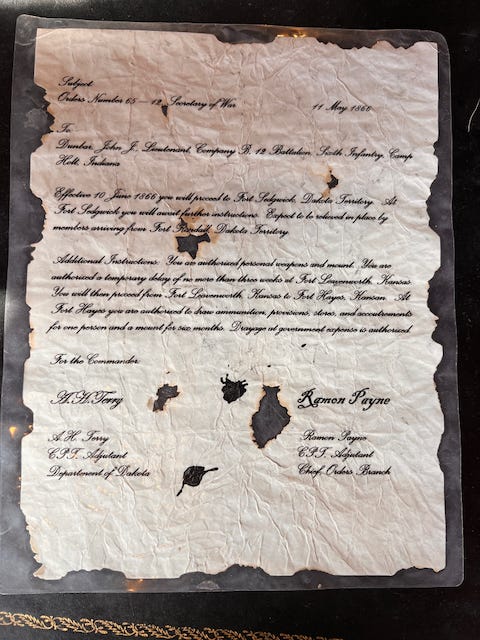 Subject:
Orders Number 65 — 12 Secretary of War
11 May 1866
To:
Dunbar, John J., Lieutenant, Company B, 12 Battalion, Sixth Infantry, Camp
Holt, Indiana
Effective 10 June 1866 you will proceed to Fort Sedgwick, Dakota Territory. At
Fort Sedgwick you will await further instructions. Expect to be relieved in place by
members arriving from Fort Randall, Dakota Territory.
Additional Instructions: You are authorized personal weapons and mount. You are
authorized a temporary delay of no more than three weeks at Fort Leavenworth, Kansas.
You will then proceed from Fort Leavenworth, Kansas to Fort Hayes, Kansan. At
Fort Hayes you are authorized to draw ammunition, provisions, stores, and accoutrements
for one person and a mount for six months. Drayage at government expense is authorized
For the Commander:
A.H. Terry
Ramon Payne
A.H. Terry
Ramon Payne
C.P.T. Adjutant
C.P.T. Adjutant
Department of Dakota
Chief, Orders Branch